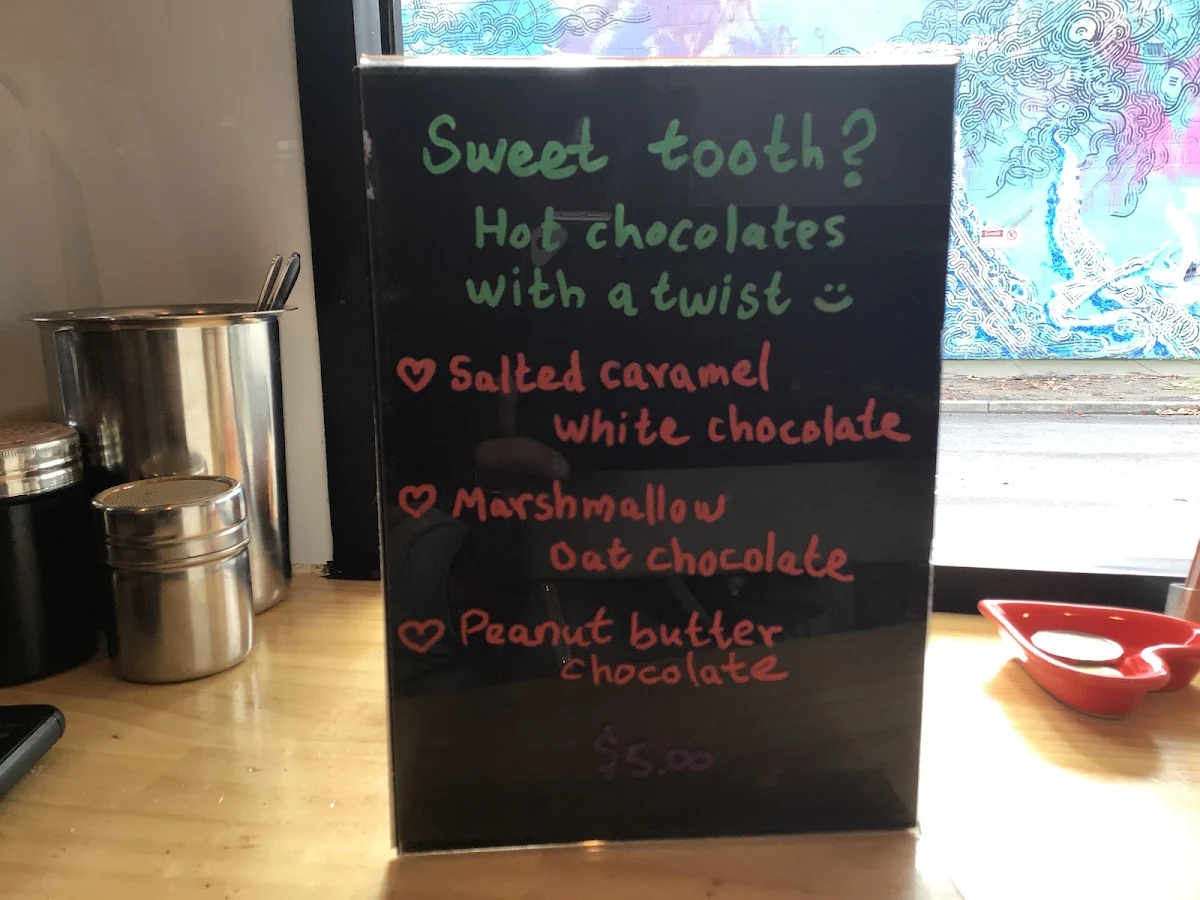 Sweet tooth?
Hot chocolates
with a twist
Salted caramel
white chocolate
Marshmallow
Oat chocolate
Peanut butter
chocolate
$5.00